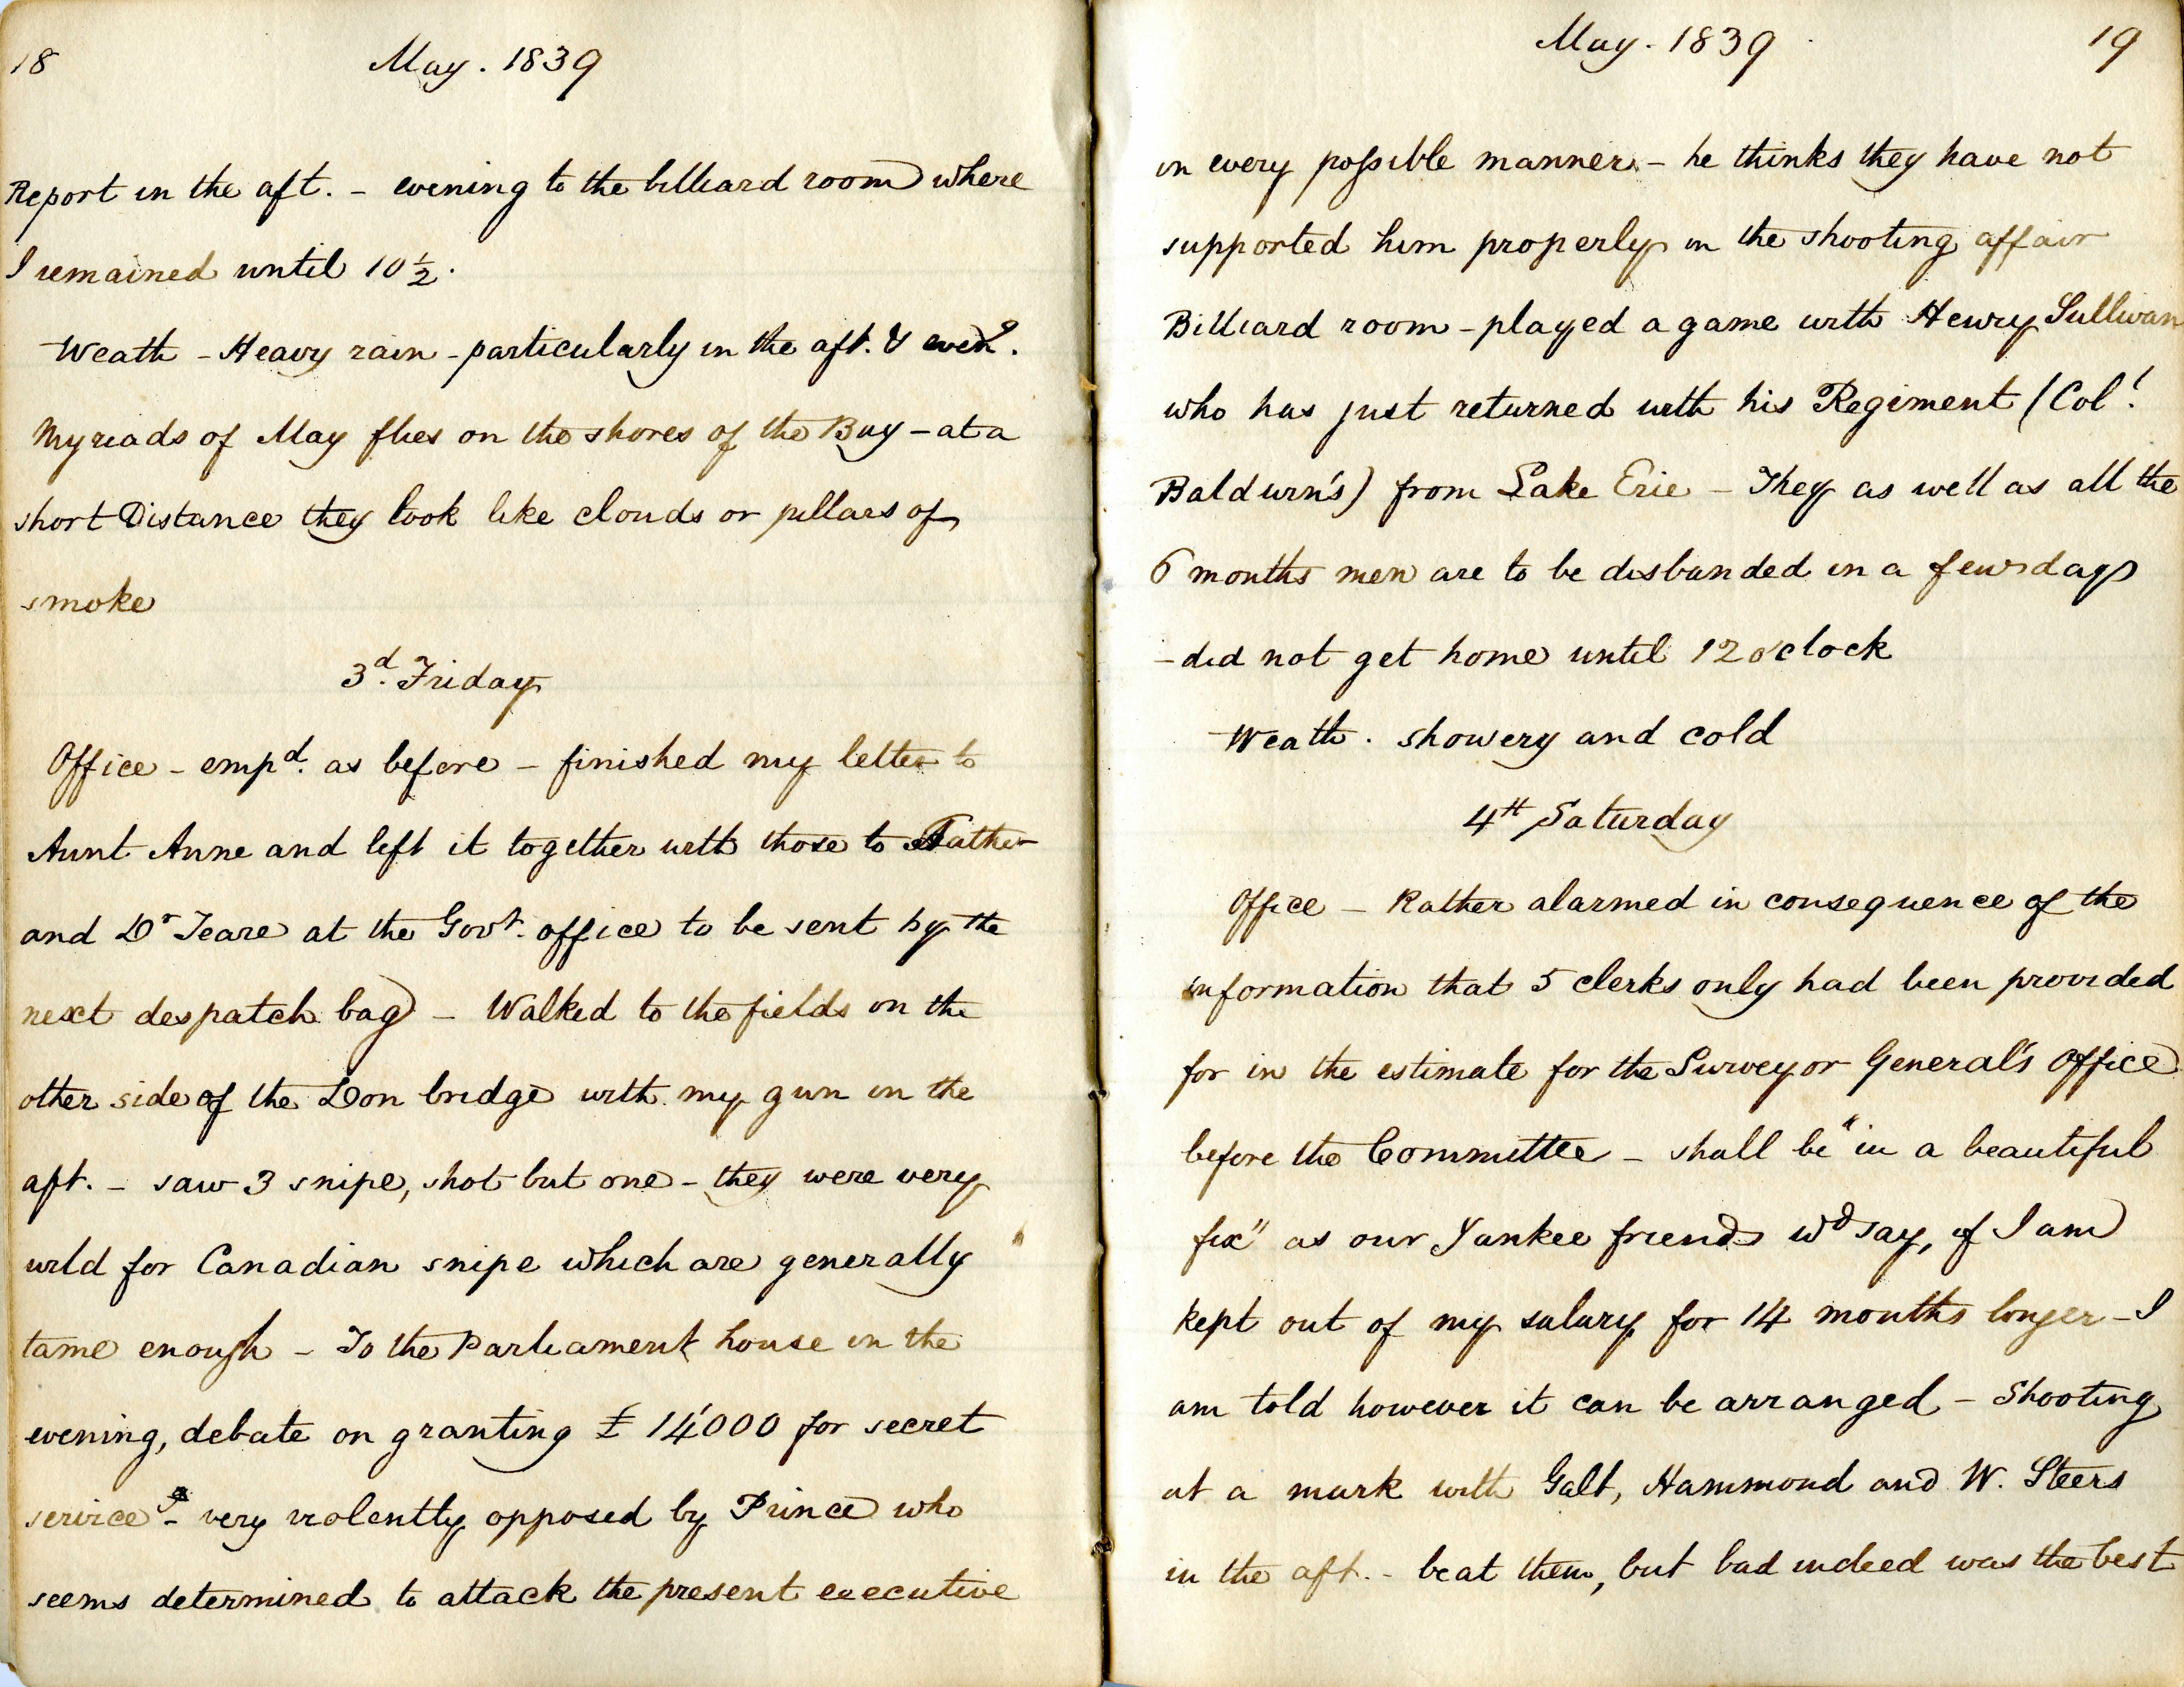 18
May. 1839
Report in the aft. - evening to the billiard room where
I remained until 10 1/2.
Weath - Heavy rain - particularly in the aft. & eveng.
Myriads of May flies on the shores of the Bay - at a
short Distance they look like clouds or pillars of
smoke
3d. Friday
Office - empd. as before - finished my letter to
Aunt Anne and left it together with those to Father
and Dr Teare at the Govt. office to be sent by the
next despatch bag - Walked to the fields on the
other side of the Don bridge with my gun in the
aft. - saw 3 snipe, shot but one - they were very
wild for Canadian snipe which are generally
tame enough - To the Parliament house in the
evening, debate on granting £ 14'000 for secret
service - very violently opposed by Prince who
seems determined to attack the present executive
May. 1839
19
in every possible manner - he thinks they have not
supported him properly in the shooting affair
Billiard room - played a game with Henry Sullivan
who has just returned with his Regiment (Coll.
Baldwin's) from Lake Erie - They as well as all the
6 months men are to be disbanded in a few days
- did not get home until 12 o'clock
Weath. showery and cold
4th Saturday
Office - Rather alarmed in consequence of the
information that 5 clerks only had been provided
for in the estimate for the Surveyor General's Office
before the Committee - shall be "in a beautiful
fix" as our Yankee friends wd say, if I am
kept out of my salary for 14 months longer - I
am told however it can be arranged - Shooting
at a mark with Galt, Hammond and W. Steers
in the aft. - beat them, but bad indeed was the best